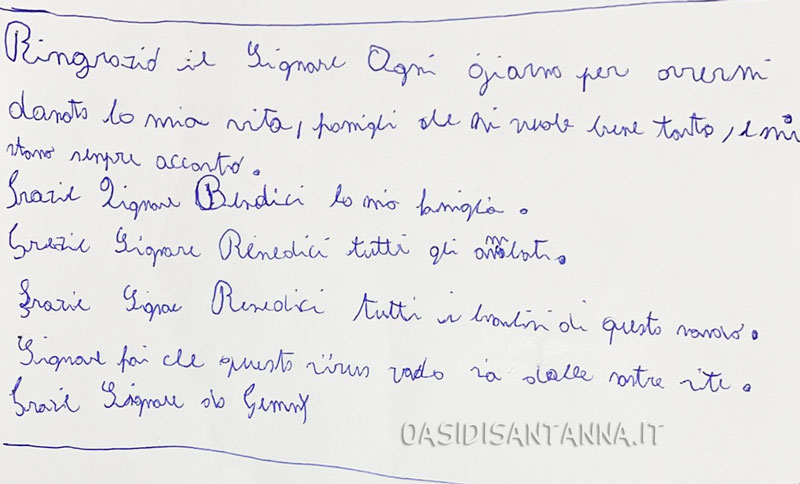 Ringrazio il Signore Ogni giorno per avermi
danato la mia vita, famigli che mi vuole bene tanto, e mi
stano sempre accanto.
Grazie Signore Benedici la mia famiglia.
Grazie Signore Benedici tutti gli amalati.
Grazie Signore Benedici tutti i bambini di questo
Signore fai che questo virus vada via dalle nostre vite.
Grazie Signore da Gemmy
OASIDISANTANNA.IT